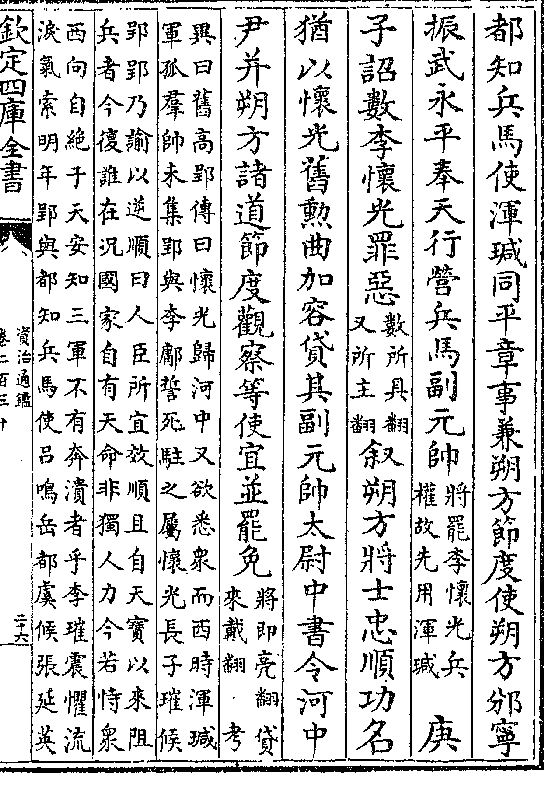 都知兵馬使渾瑊同平章事兼朔方節度使朔方邠寧
振武永平奉天行營兵馬副元帥將罷李懷光兵權故先用渾瑊庚
子詔數李懷光罪惡數所具翻又所主翻叙朔方將士忠順功名
猶以懷光舊勲曲加容貸其副元帥太尉中書令河中
尹并朔方諸道節度觀察等使宜並罷免將即亮翻貸來戴翻考
異曰舊高郢傳曰懷光歸河中又欲悉衆而西時渾瑊
軍孤羣帥未集郢與李鄘誓死駐之屬懷光長子璀候
郢郢乃諭以逆順曰人臣所宜效順且自天寶以來阻
兵者今復誰在况國家自有天命非獨人力今若恃衆
西向自絶于天安知三軍不有奔潰者乎李璀震懼流
淚氣索明年郢與都知兵馬使呂鳴岳都虞候張延英
欽定四庫全書
資治通鑑
卷二百三十
二十六